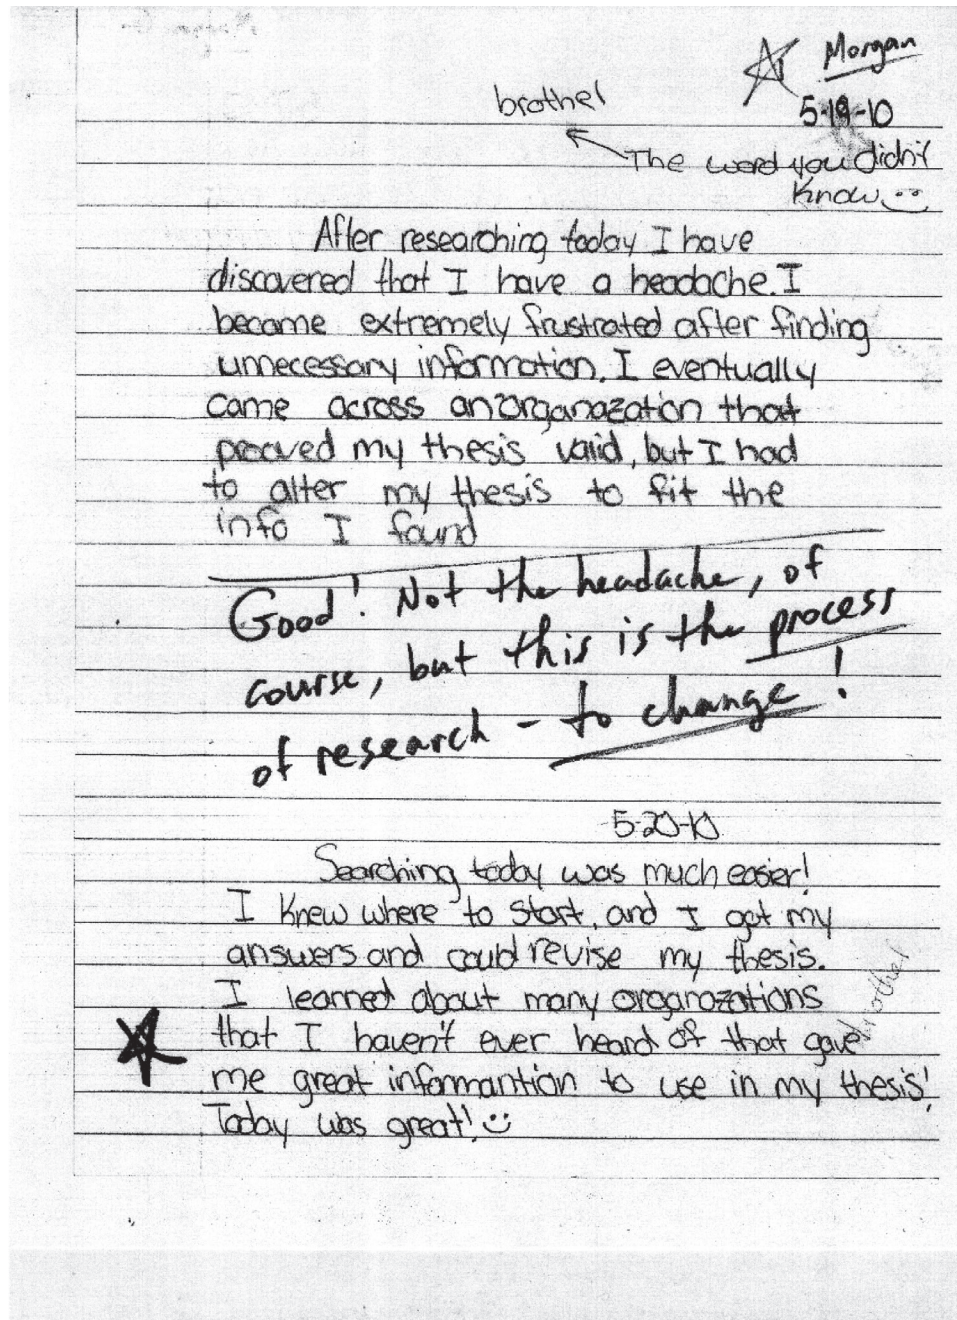 Morgan
brothel
5-19-10
The word you didn't
know
After researching today I have
discovered that I have a headache. I
became extremely frustrated after finding
unnecessary information. I eventually
came across an organazation that
prooved my thesis valid, but I had
to alter my thesis to fit the
info I found
Good! Not the headache, of
course, but this is the process
of research - to change!
5-20-10
Searching today was much easier!
I knew where to start, and I got my
answers and could revise my thesis.
I learned about many organazations
that I haven't ever heard of that gave
me great informantion to use in my thesis!
Today was great!
brothel